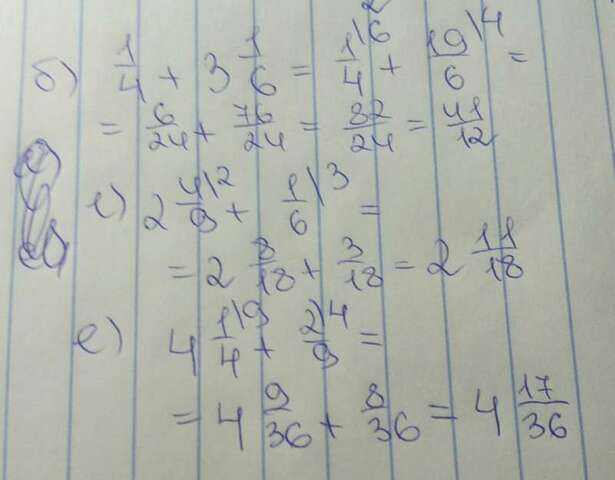 б) 1/4 + 3 1/6 = 1\6/4 + 19\4/6 =
= 6/24 + 76/24 = 82/24 = 41/12
г) 2 4\2/9 + 1\3/6 =
= 2 8/18 + 3/18 = 2 11/18
е) 4 1\9/4 + 2\4/9 =
= 4 9/36 + 8/36 = 4 17/36